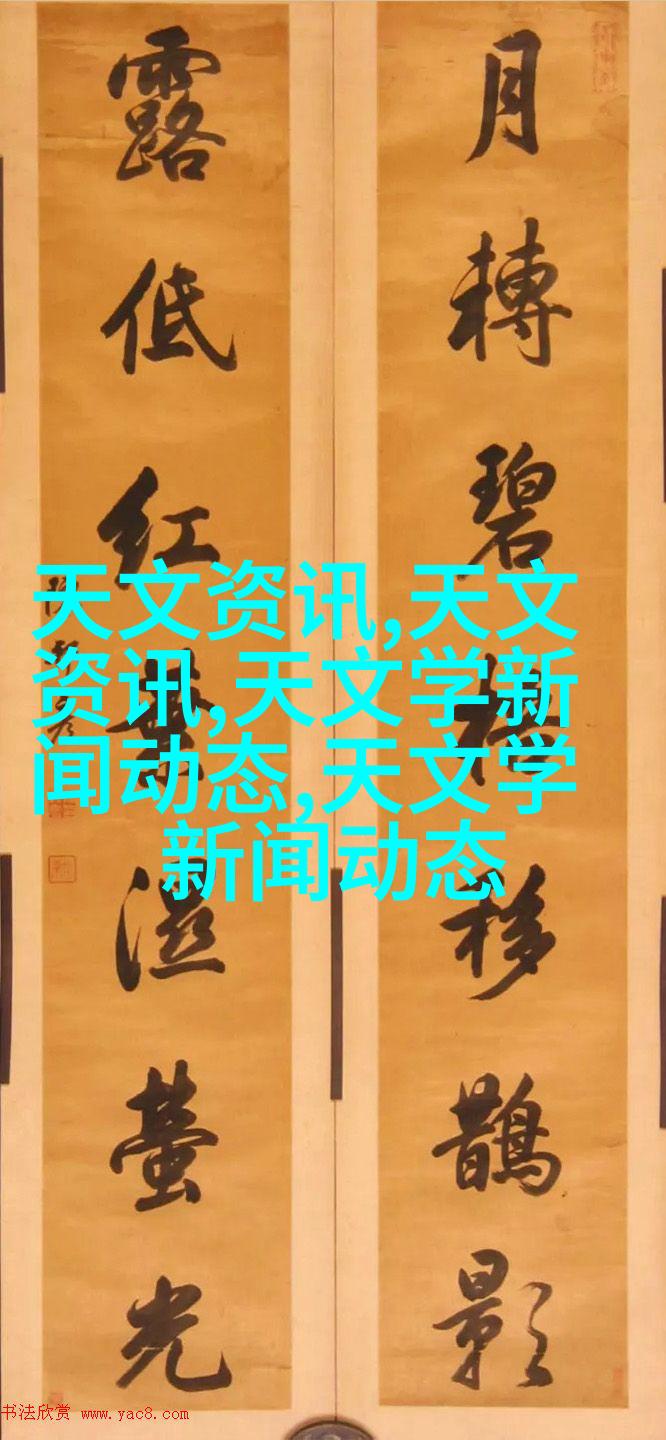 月轉碧梧移鵲影
露低紅葉濕螢光
天文资讯,天文
资讯,天文学新
闻动态,天文学
新闻动态
书法欣赏 www.yac8.com